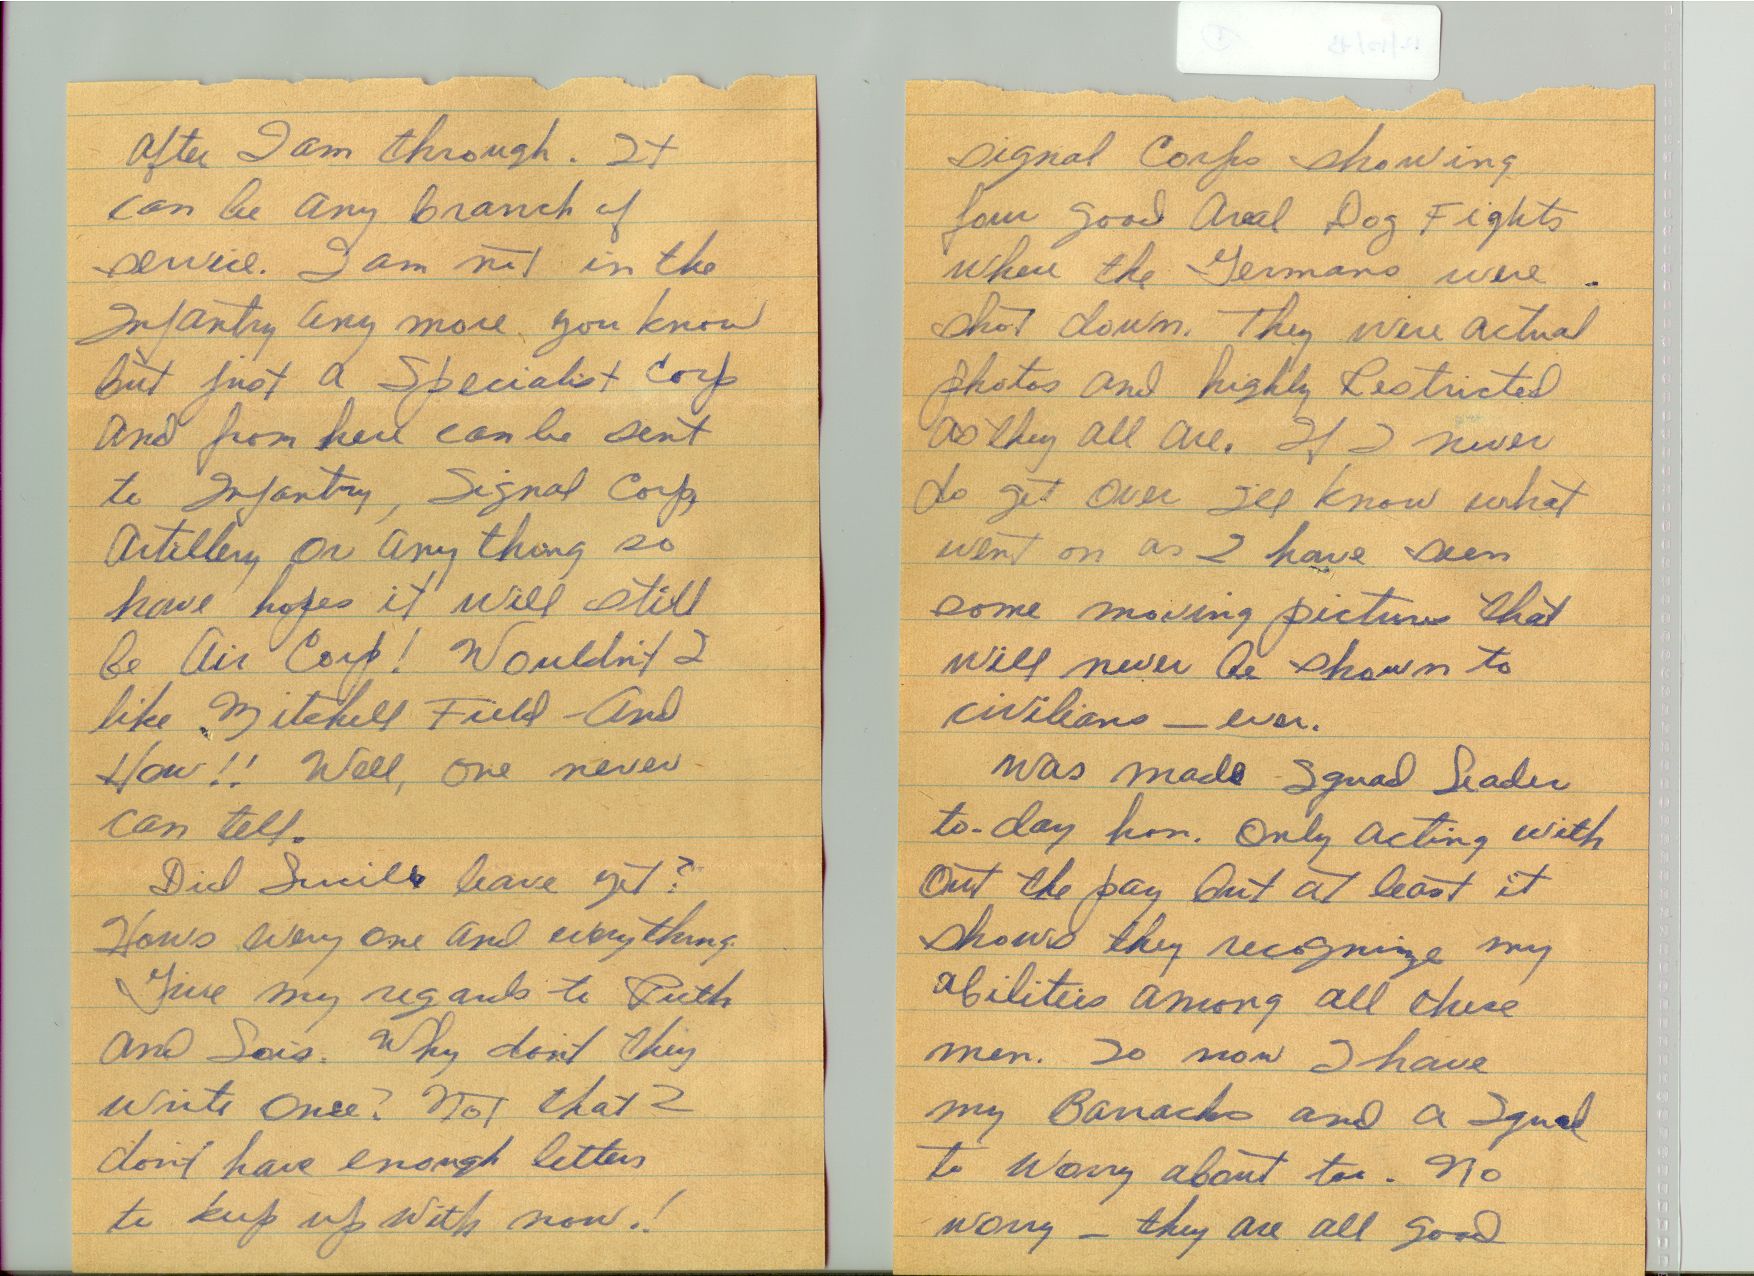 after I am through. It
can be any branch of
service. I am not in the
Infantry any more you know
but just a Specialist Corp
and from here can be sent
to Infantry, Signal Corp,
Artillery or any thing so
have hopes it will still
be Air Corp! Wouldn't I
like Mitchell Field - And
How!! Well, one never
can tell.
Did Lucille leave yet?
Hows every one and everything.
Give my regards to Ruth
and Lois. Why don't they
write once? Not that I
don't have enough letters
to keep up with now.!
Signal Corps showing
four good Areal Dog Fights
where the Germans were
shot down. They were actual
photos and highly Restricted
as they all are. If I never
do get over I'll know what
went on as I have seen
some moving pictures that
will never be shown to
civilians — ever.
Was made Squad Leader
to-day hon. Only acting with
out the pay but at least it
shows they recognize my
abilities among all these
men. So now I have
my Barracks and a Squad
to worry about too. No
worry — they are all good